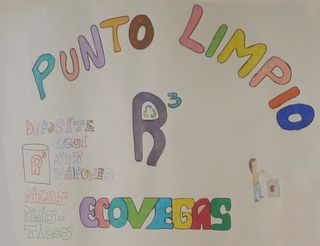 PUNTO LIMPIO
R3
DEPOSITE
AQUÍ
SUS
TAPONES
R3
PILAS
PLÁS-
TICOS
ECOVEGAS